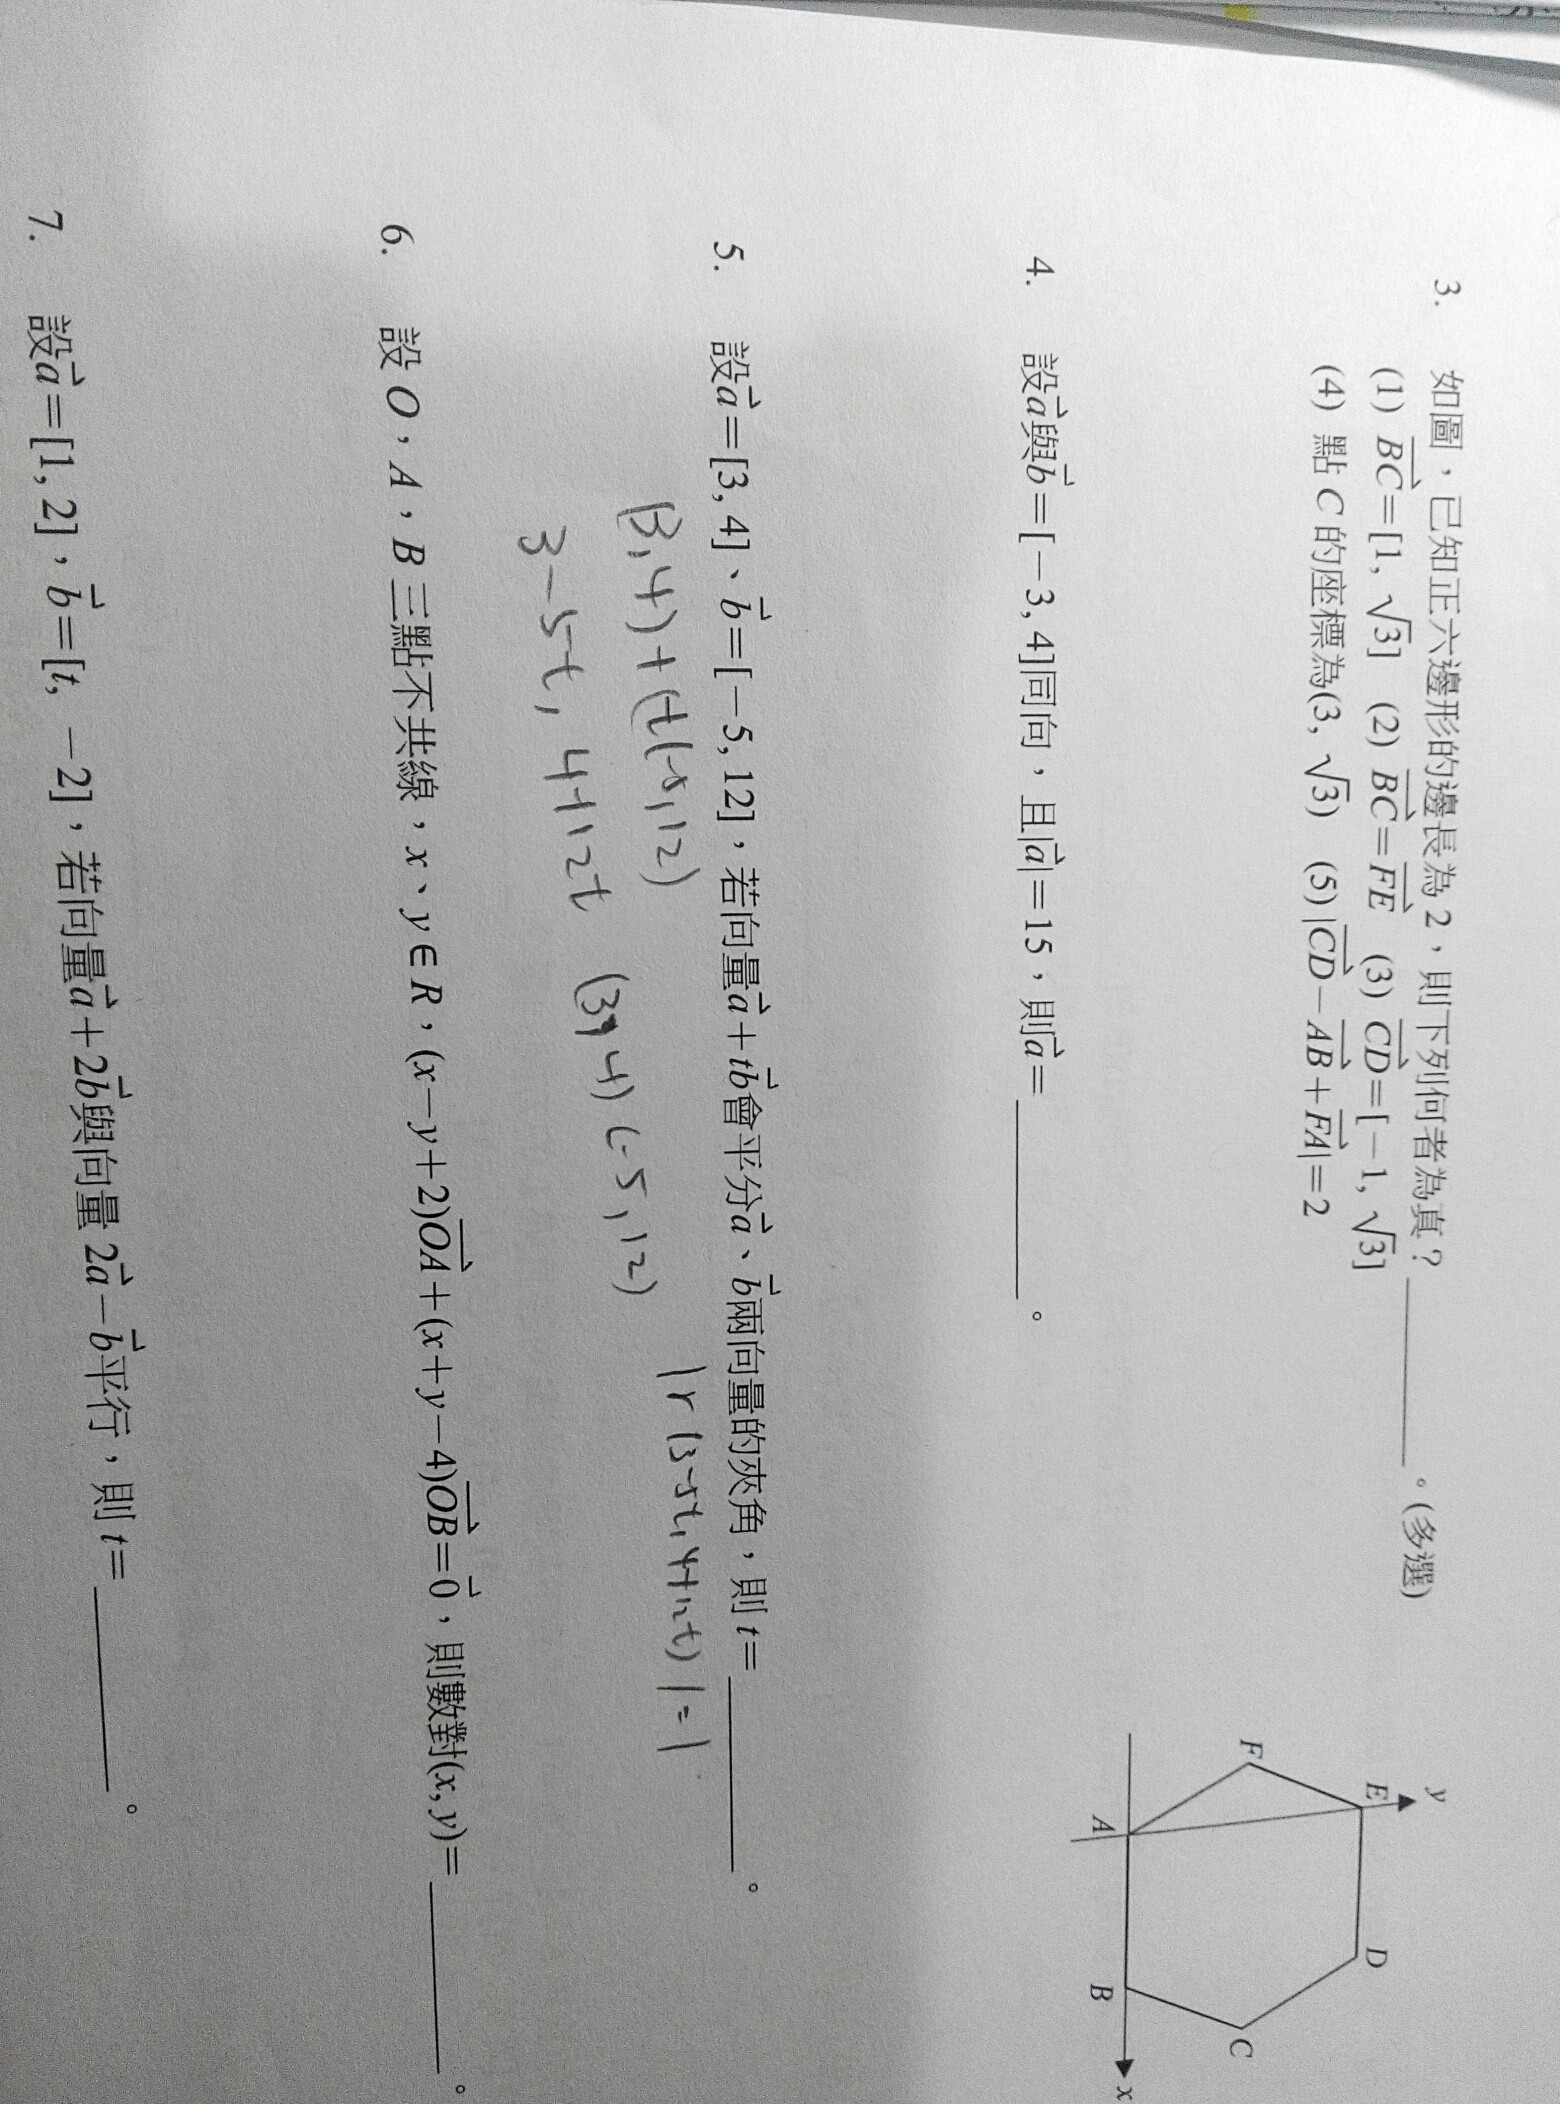 3. 如圖,已知正六邊形的邊長為2,則下列何者為真?________。(多選)
(1) \overrightarrow{BC}=[1, √3] (2) \overrightarrow{BC}=\overrightarrow{FE} (3) \overrightarrow{CD}=[-1, √3]
(4) 點C的座標為(3, √3) (5) |\overrightarrow{CD}-\overrightarrow{AB}+\overrightarrow{FA}|=2
y
E
D
F
C
A
B
x
4. 設\vec{a}與\vec{b}=[-3, 4]同向,且|\vec{a}|=15,則\vec{a}=________。
5. 設\vec{a}=[3, 4]、\vec{b}=[-5, 12],若向量\vec{a}+t\vec{b}會平分\vec{a}、\vec{b}兩向量的夾角,則t=________。
(3,4)+(t(-5,12) |r(3-5t,4+12t)|=1
3-5t, 4+12t (3,4) (-5,12)
6. 設O,A,B三點不共線,x、y∈R,(x-y+2)\overrightarrow{OA}+(x+y-4)\overrightarrow{OB}=\vec{0},則數對(x, y)=________。
7. 設\vec{a}=[1, 2],\vec{b}=[t, -2],若向量\vec{a}+2\vec{b}與向量2\vec{a}-\vec{b}平行,則t=________。